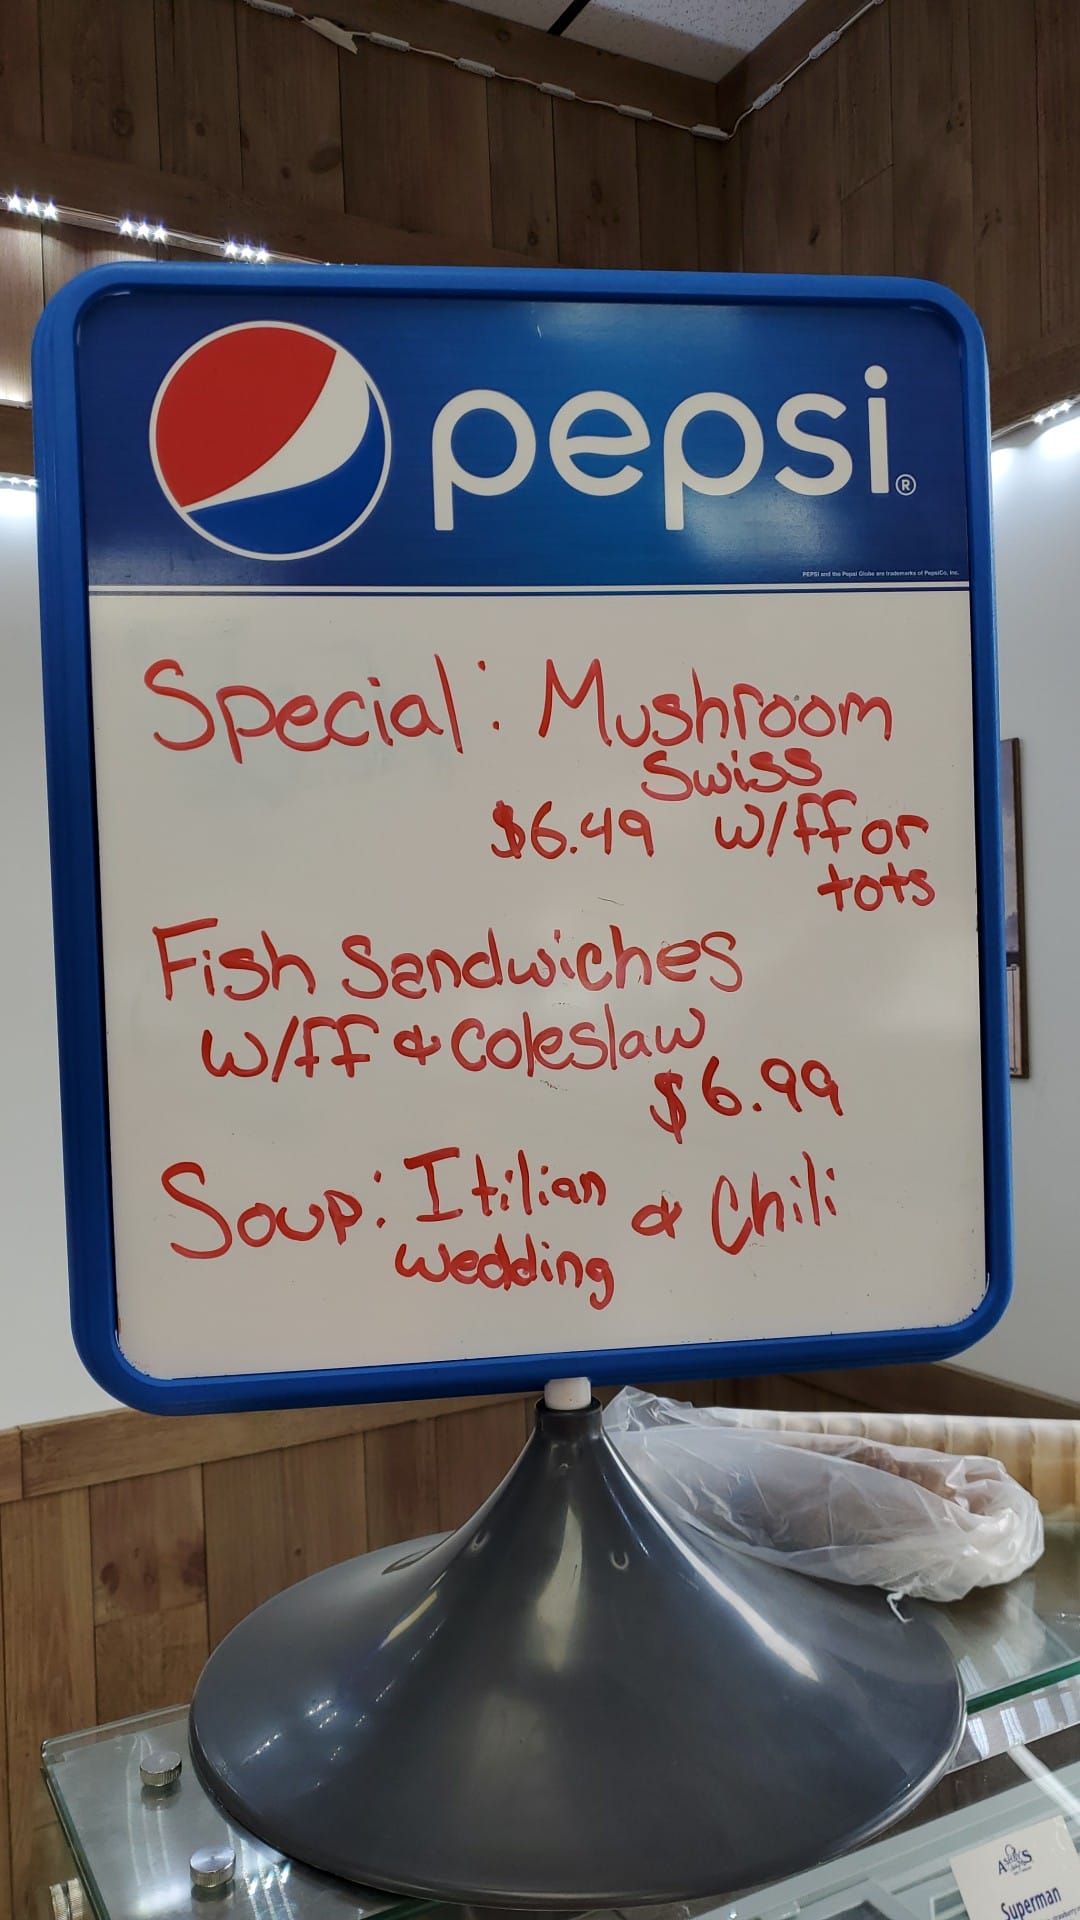 pepsi®
PEPSI and the Pepsi Globe are trademarks of PepsiCo, Inc.
Special: Mushroom
Swiss
$6.49 w/ff or
tots
Fish Sandwiches
w/ff & Coleslaw
$6.99
Soup: Itilian & Chili
wedding
ASHBY'S
Superman